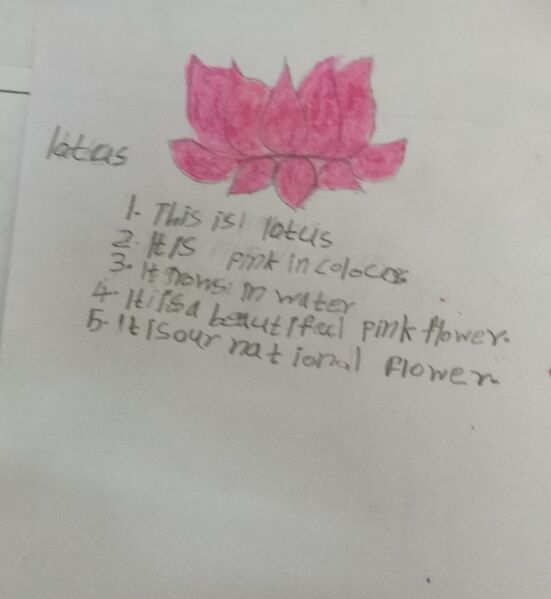 lotas
1. This is lotus
2. It is pink in colocor
3. It grows in water
4. It is a beautifeal pink flower.
5. It is our national flower.